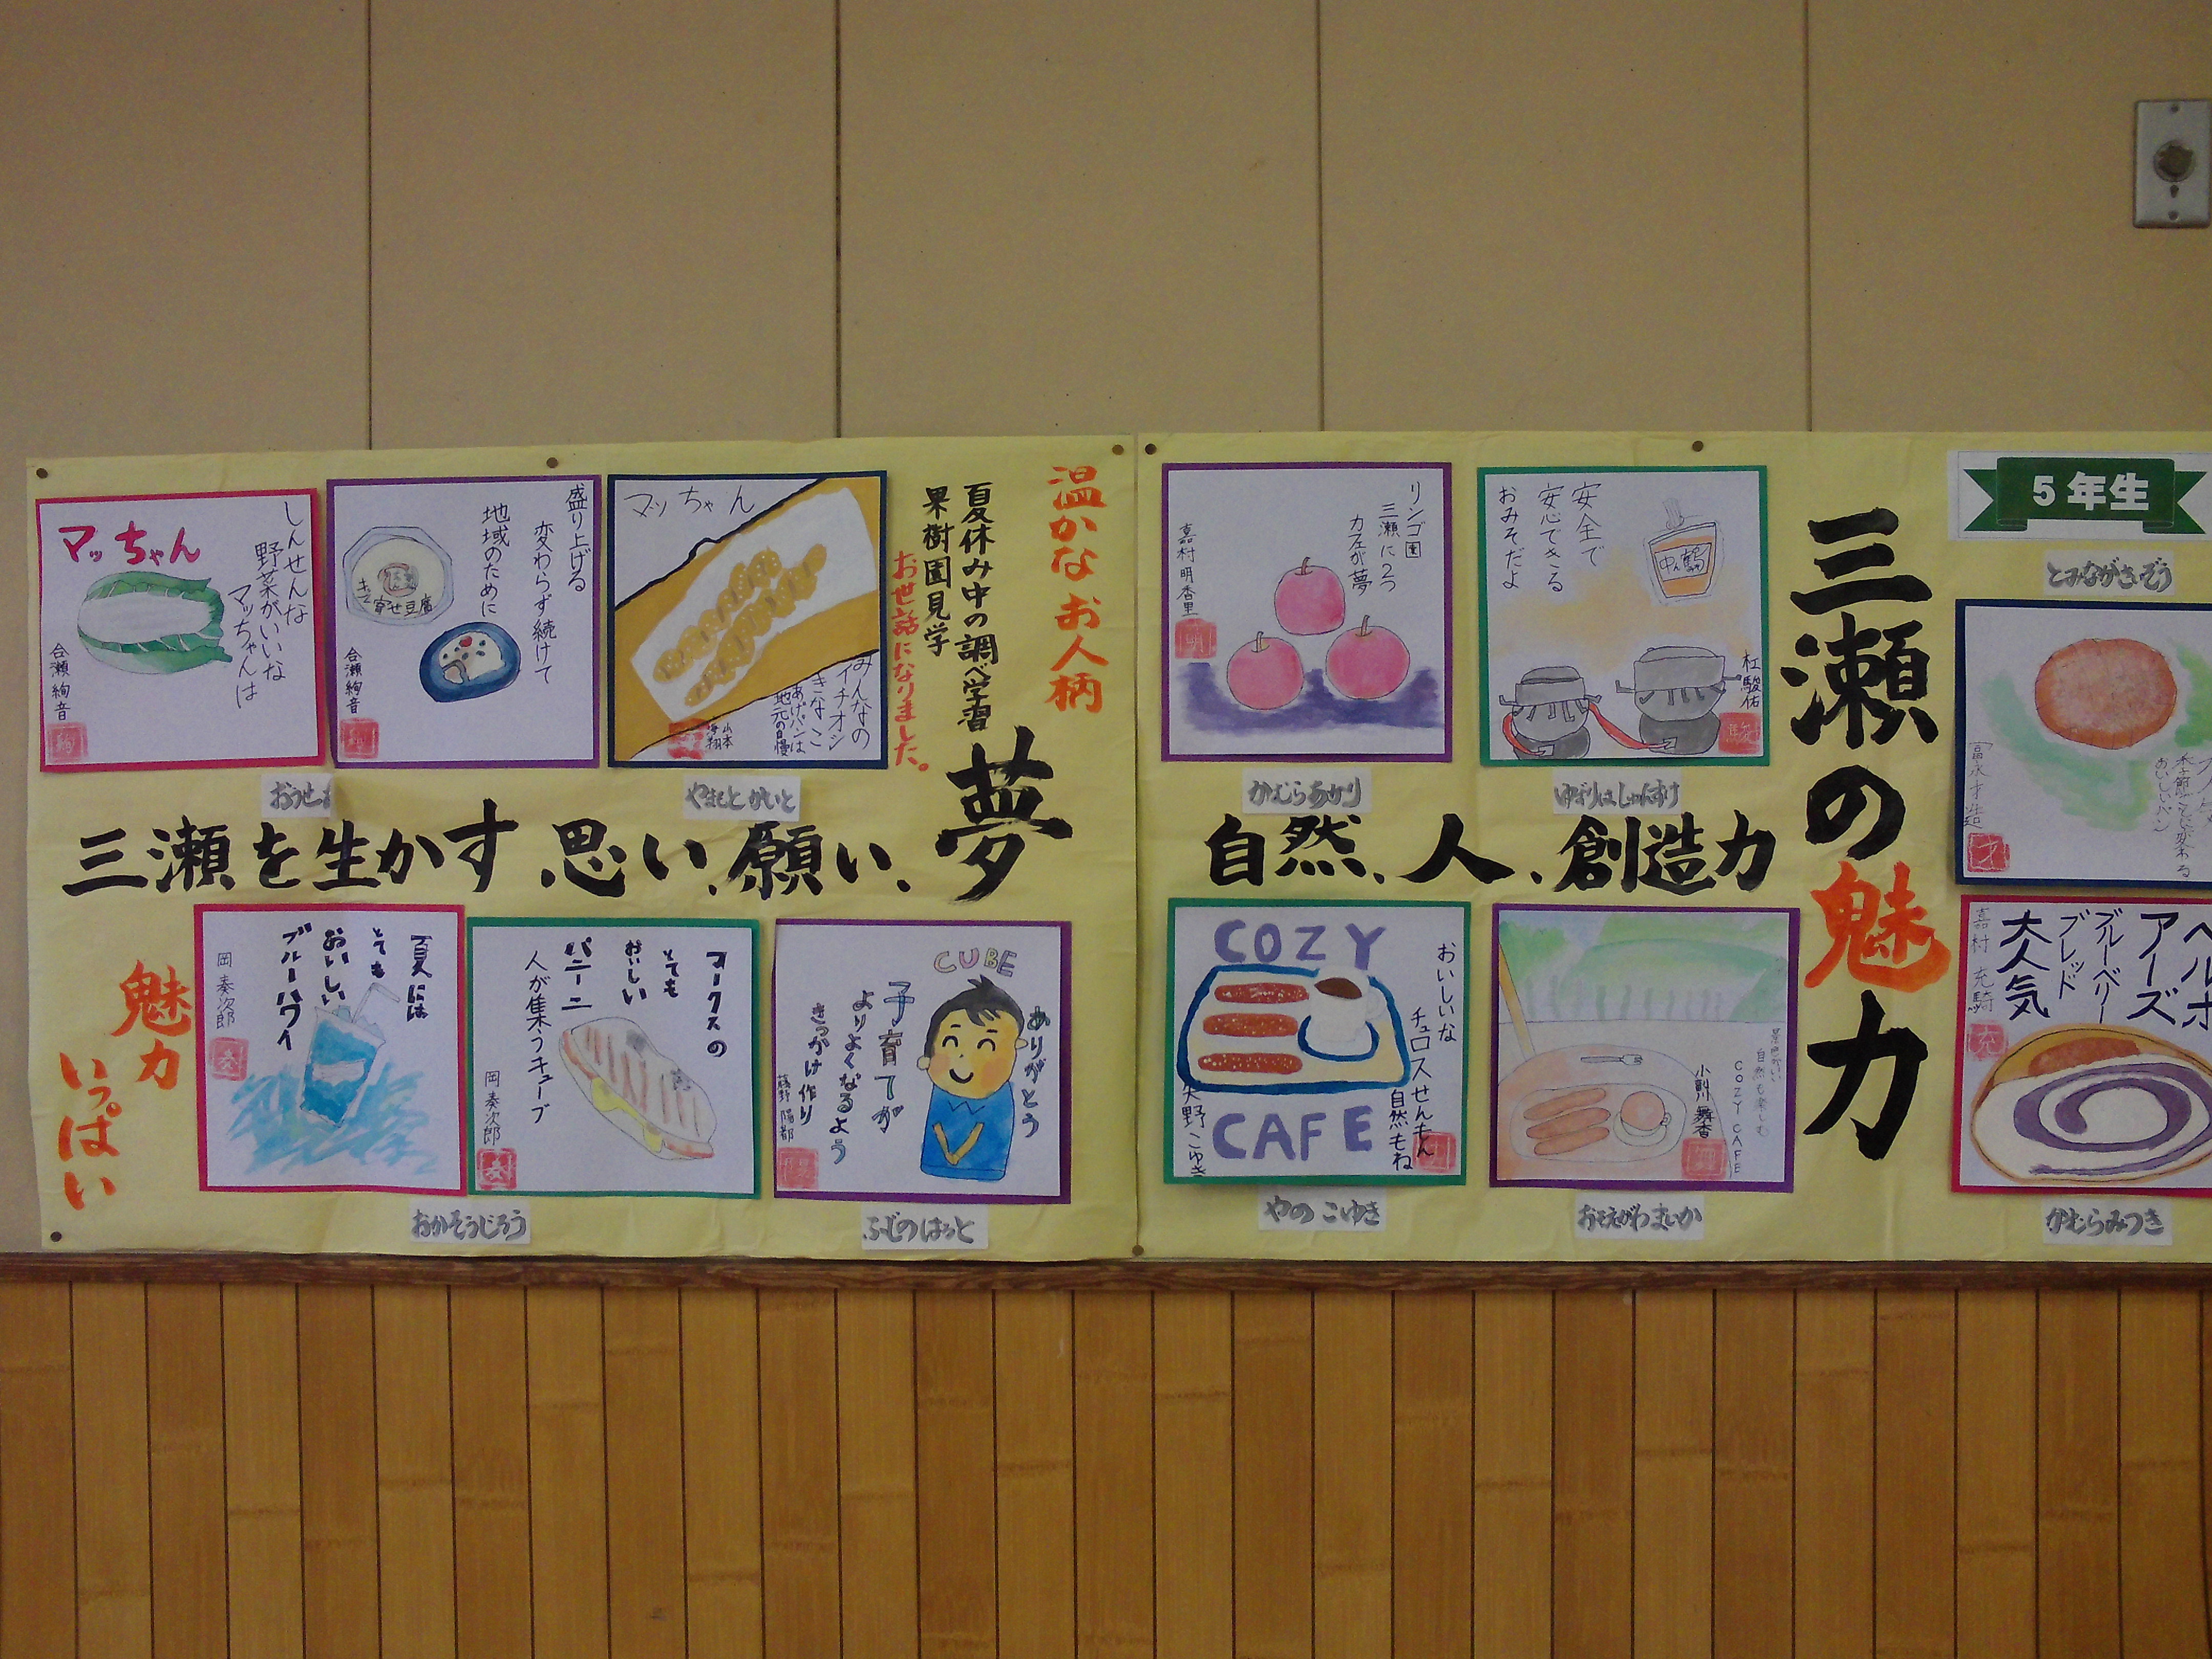 5年生
三瀬の魅力
とみながさいぞう
大人気
ブルーベリー
ブレッド
嘉村 充騎
かむらみつき
自然、人、創造力
リンゴ園
三瀬に2つ
カフェが夢
嘉村明香里
かむらあかり
安全で
安心できる
おみそだよ
杠駿佑
ゆずりはしゅんすけ
COZY
CAFE
おいしいな
チュロスせんもん
自然もね
矢野こゆき
やの こゆき
自然も楽しむ
COZY CAFE
小副川舞香
おそえがわまいか
温かなお人柄
夏休み中の調べ学習
果樹園見学
お世話になりました。
三瀬を生かす、思い、願い、夢
マッちゃん
みんなの
イチオシ
きなこ
あげパンは
地元の自慢
山本海翔
やまもとかいと
盛り上げる
変わらず続けて
地域のために
寄せ豆腐
合瀬絢音
マッちゃん
しんせんな
野菜がいいな
マッちゃんは
合瀬絢音
CUBE
ありがとう
子育てが
よりよくなるよう
きっかけ作り
ふじのはると
マークスの
とても
おいしい
パニーニ
人が集うキューブ
岡奏次郎
夏には
とても
おいしい
ブルーハワイ
岡奏次郎
おかそうじろう
魅力
いっぱい